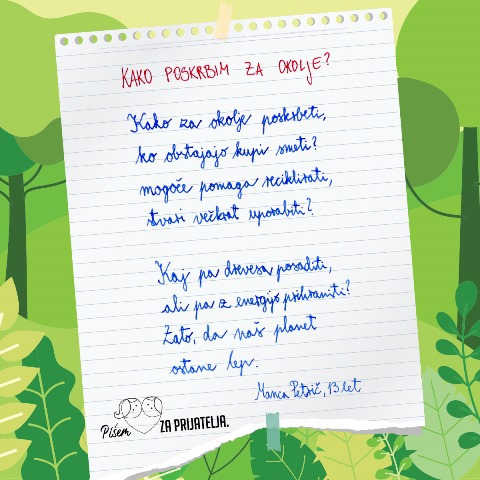 KAKO POSKRBIM ZA OKOLJE?
Kako za okolje poskrbeti,
ko obstajajo kupi smeti?
mogoče pomaga reciklirati,
stvari večkrat uporabiti?
Kaj pa drevesa posaditi,
ali pa z energijo prihraniti?
Zato, da naš planet
ostane lep.
Manca Petrič, 13 let
Pišem ZA PRIJATELJA.